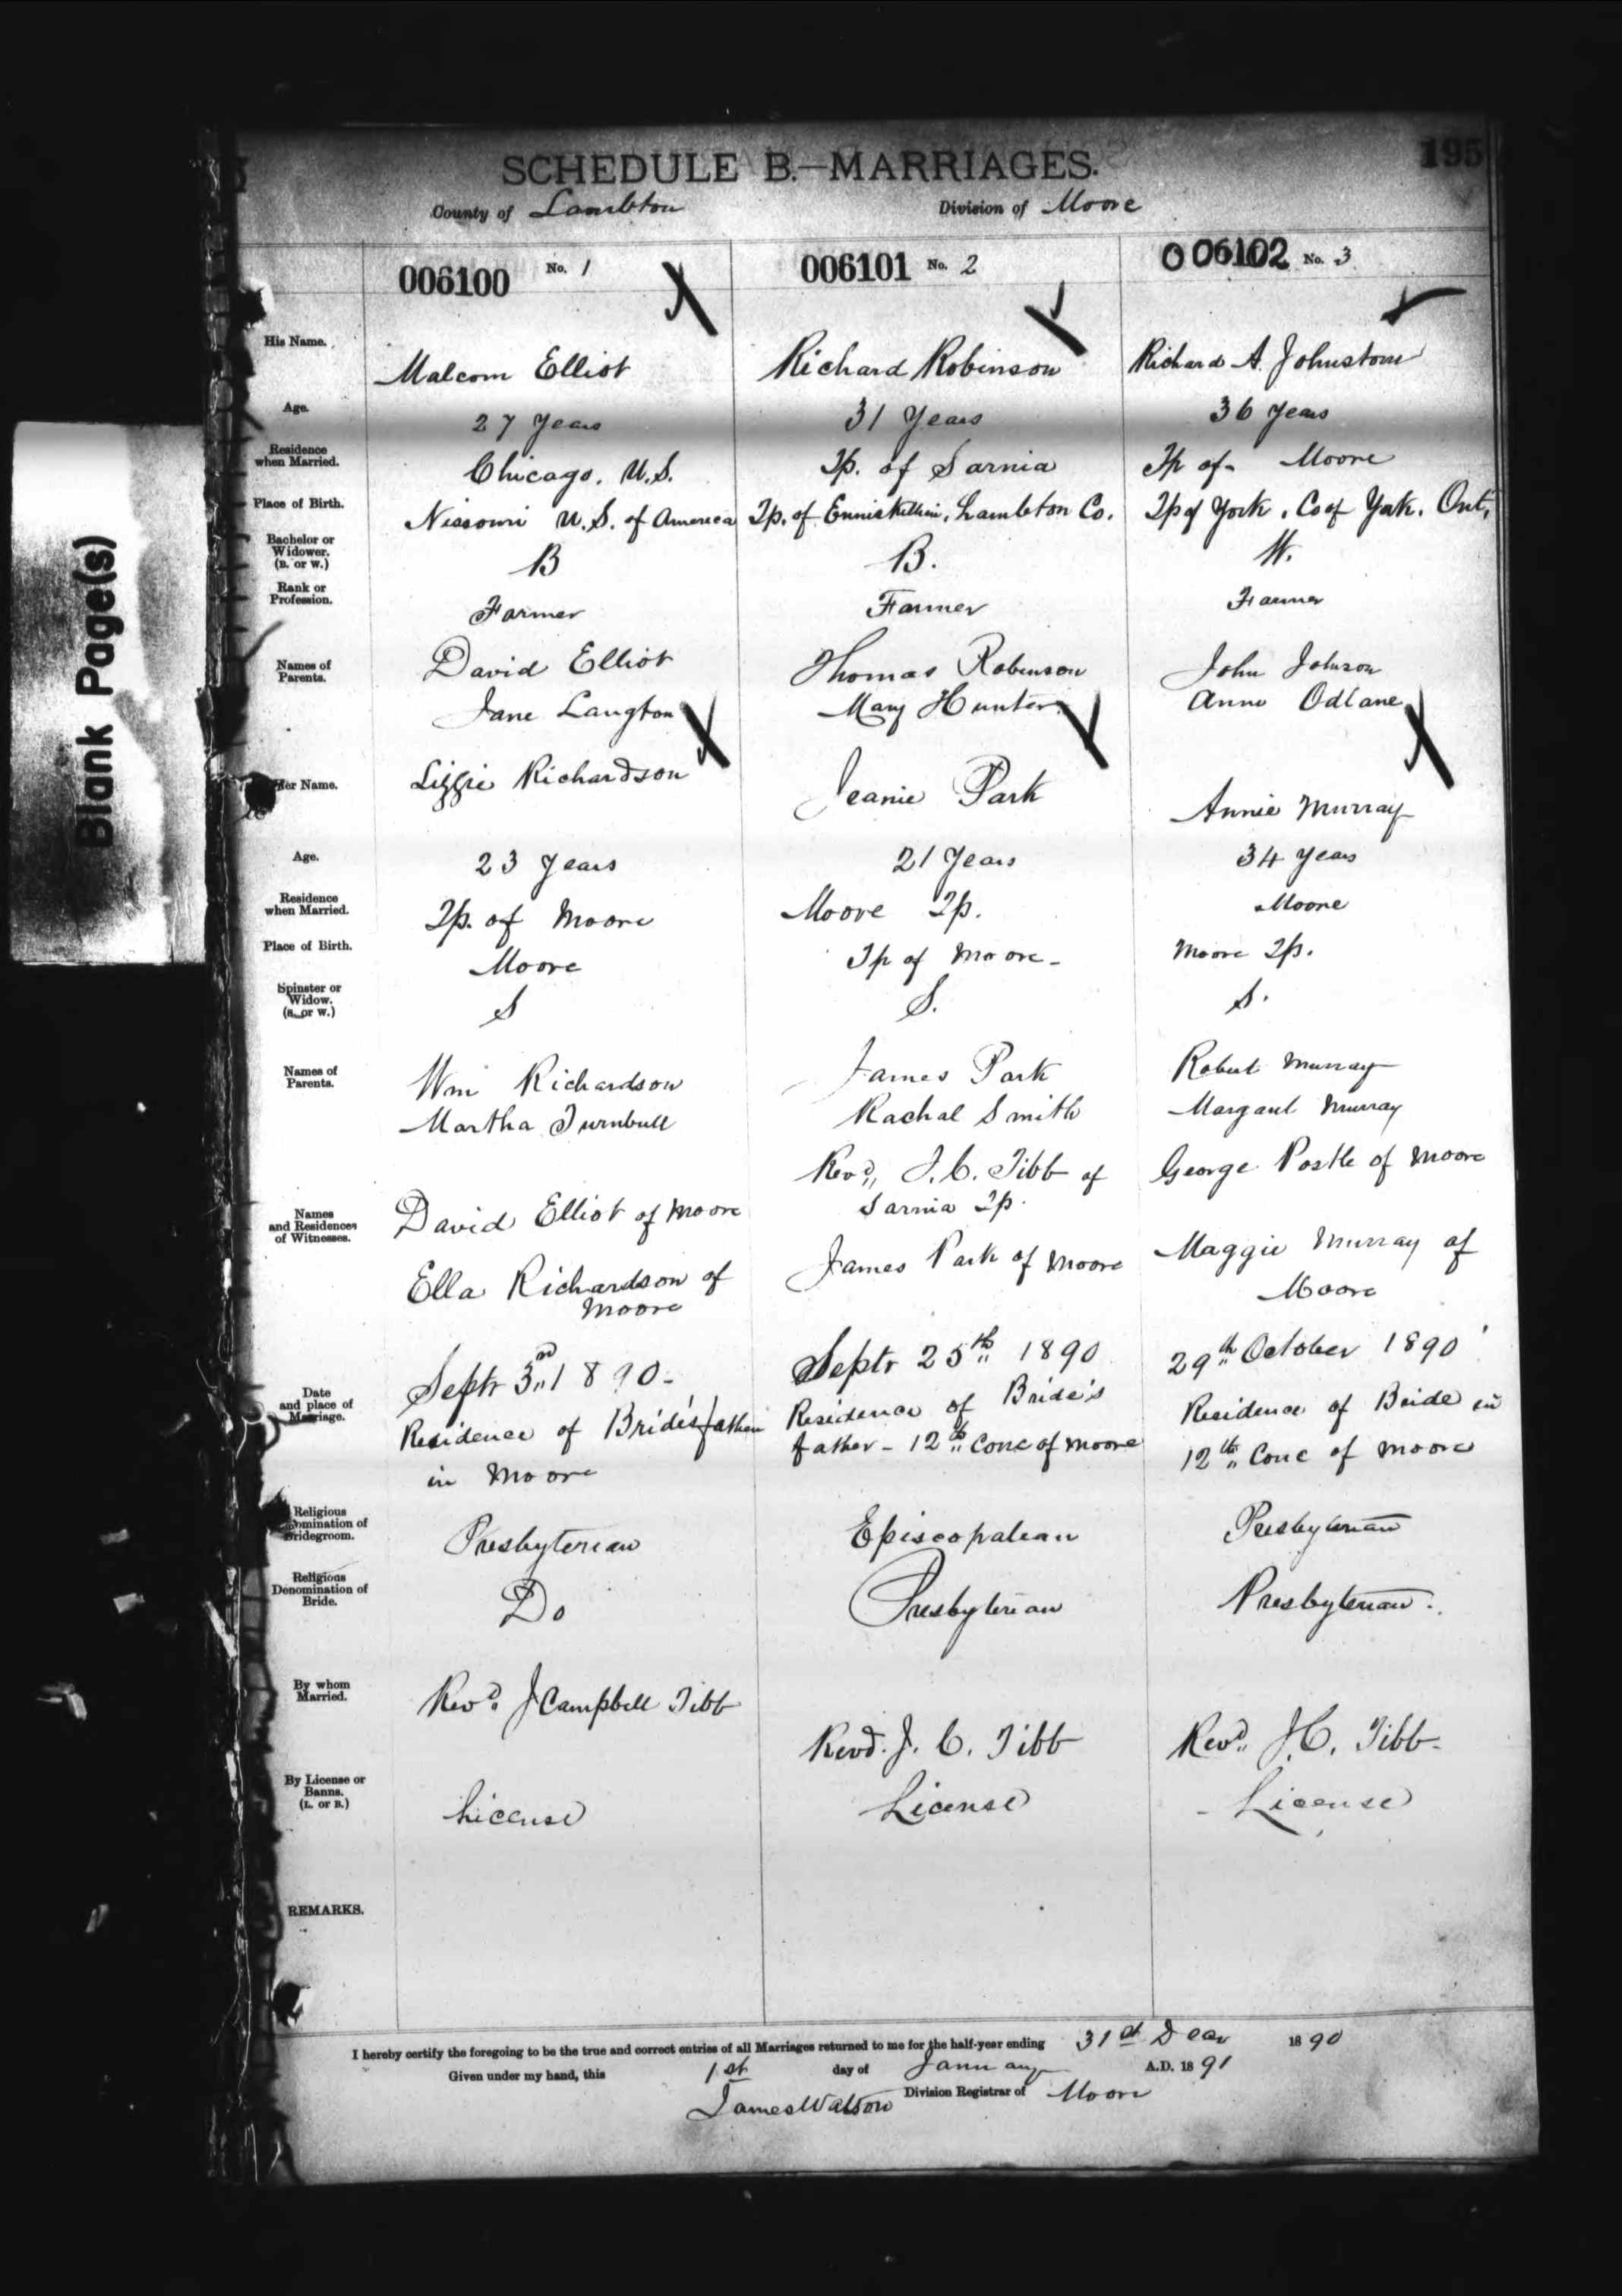 195
SCHEDULE B.—MARRIAGES.
County of Lambton Division of Moore
006100 No. 1 006101 No. 2 006102 No. 3
His Name. Malcom Elliot Richard Robinson Richard A. Johnston
Age. 27 Years 31 Years 36 Years
Residence when Married. Chicago, U.S. Tp. of Sarnia Tp of Moore
Place of Birth. Nissouri U.S. of America Tp. of Enniskillin, Lambton Co. Tp of York, Co of York, Ont,
Bachelor or Widower. (B. or W.) B B. W.
Rank or Profession. Farmer Farmer Farmer
Names of Parents. David Elliot Thomas Robinson John Johnson
Jane Langton Mary Hunter Anne Odlane
Her Name. Lizzie Richardson Jeanie Park Annie Murray
Age. 23 Years 21 Years 34 Years
Residence when Married. Tp. of Moore Moore Tp. Moore
Place of Birth. Moore Tp of Moore Moore Tp.
Spinster or Widow. (S. or W.) S S. S.
Names of Parents. Wm Richardson James Park Robert Murray
Martha Turnbull Rachal Smith Margaret Murray
Names and Residences of Witnesses. David Elliot of Moore Revd., J. C. Tibb of Sarnia Tp. George Postle of Moore
Ella Richardson of Moore James Park of Moore Maggie Murray of Moore
Date and place of Marriage. Septr 3rd 1890 Septr 25th 1890 29th October 1890
Residence of Bride's father in Moore Residence of Bride's father - 12th Conc of Moore Residence of Bride in 12th Conc of Moore
Religious Denomination of Bridegroom. Presbyterian Episcopalean Presbyterian
Religious Denomination of Bride. Do Presbyterian Presbyterian.
By whom Married. Revd. J Campbell Tibb Revd. J. C. Tibb Revd. J. C. Tibb
By License or Banns. (L. or B.) License License License
REMARKS.
I hereby certify the foregoing to be the true and correct entries of all Marriages returned to me for the half-year ending 31st Decr 1890
Given under my hand, this 1st day of January A.D. 1891
James Watson Division Registrar of Moore
Blank Page(s)